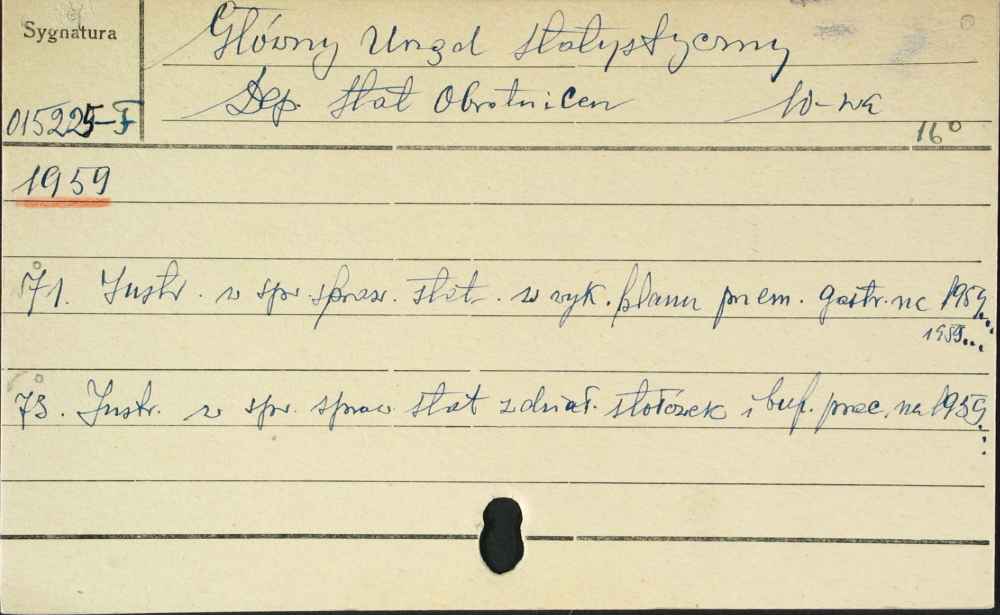 Sygnatura
Główny Urząd Statystyczny
Dep. Stat Obrotu i Cen W-wa
015225-F
16°
1959
71. Instr. w spr spraw. stat. z wyk. planu przem. gastr. na 1959...
1959...
73. Instr. w spr. spraw. stat z dział. stołówek i buf. prac. na 1959